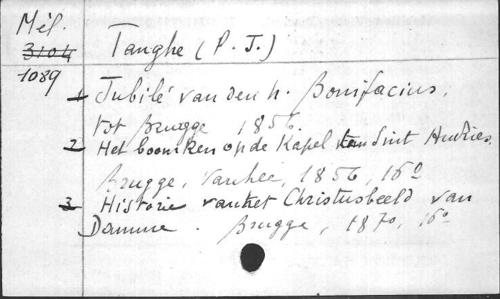 Mél.
3104
1089
Tanghe (P. J.)
1 Jubilé van den h. Bonifacius,
tot Brugge, 1856.
2 Het boomken op de Kapel van Sint Andries.
Brugge, Vanhee, 1856, 16°
3 Historie van het Christusbeeld van
Damme. Brugge, 1870, 16°